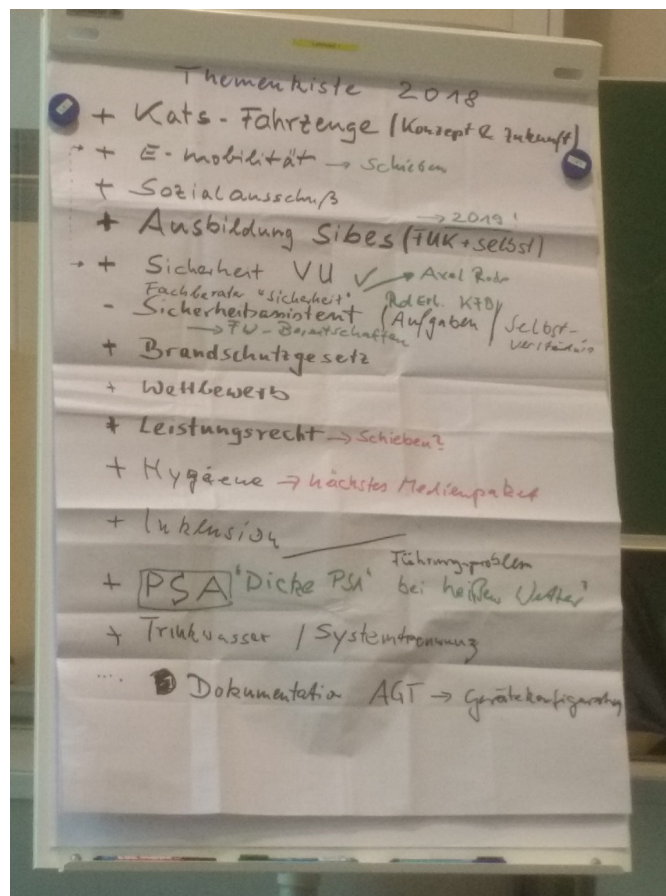 Themenkiste 2018
+ Kats-Fahrzeuge (Konzept & Zukunft)
+ E-mobilität → Schieben
+ Sozialausschuß
→ 2019!
+ Ausbildung Sibes (TUK + selbst)
+ Sicherheit VU ✓ → Axel
Fachberater "Sicherheit" RdErl. KFB
- Sicherheitsassistent / Aufgaben / Selbst-
→ FW-Bereitschaften verständnis
+ Brandschutzgesetz
+ Wettbewerb
+ Leistungsrecht → Schieben?
+ Hygiene → nächstes Medienpaket
+ Inklusion
Führungsproblem
+ PSA "Dicke PSA" bei heißem Wetter
+ Trinkwasser / Systemtrennung
.... Dokumentation AGT → Gerätekonfiguration